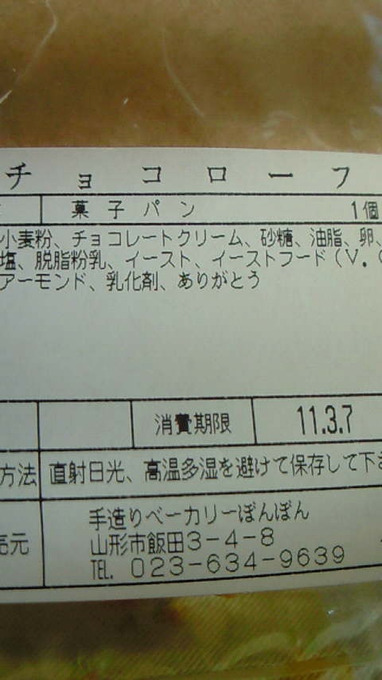 チョコローフ
菓子パン 1個
小麦粉、チョコレートクリーム、砂糖、油脂、卵、
塩、脱脂粉乳、イースト、イーストフード(V.C
アーモンド、乳化剤、ありがとう
消費期限 11.3.7
方法 直射日光、高温多湿を避けて保存して下さ
手造りベーカリーぽんぽん
売元 山形市飯田3-4-8
TEL. 023-634-9639